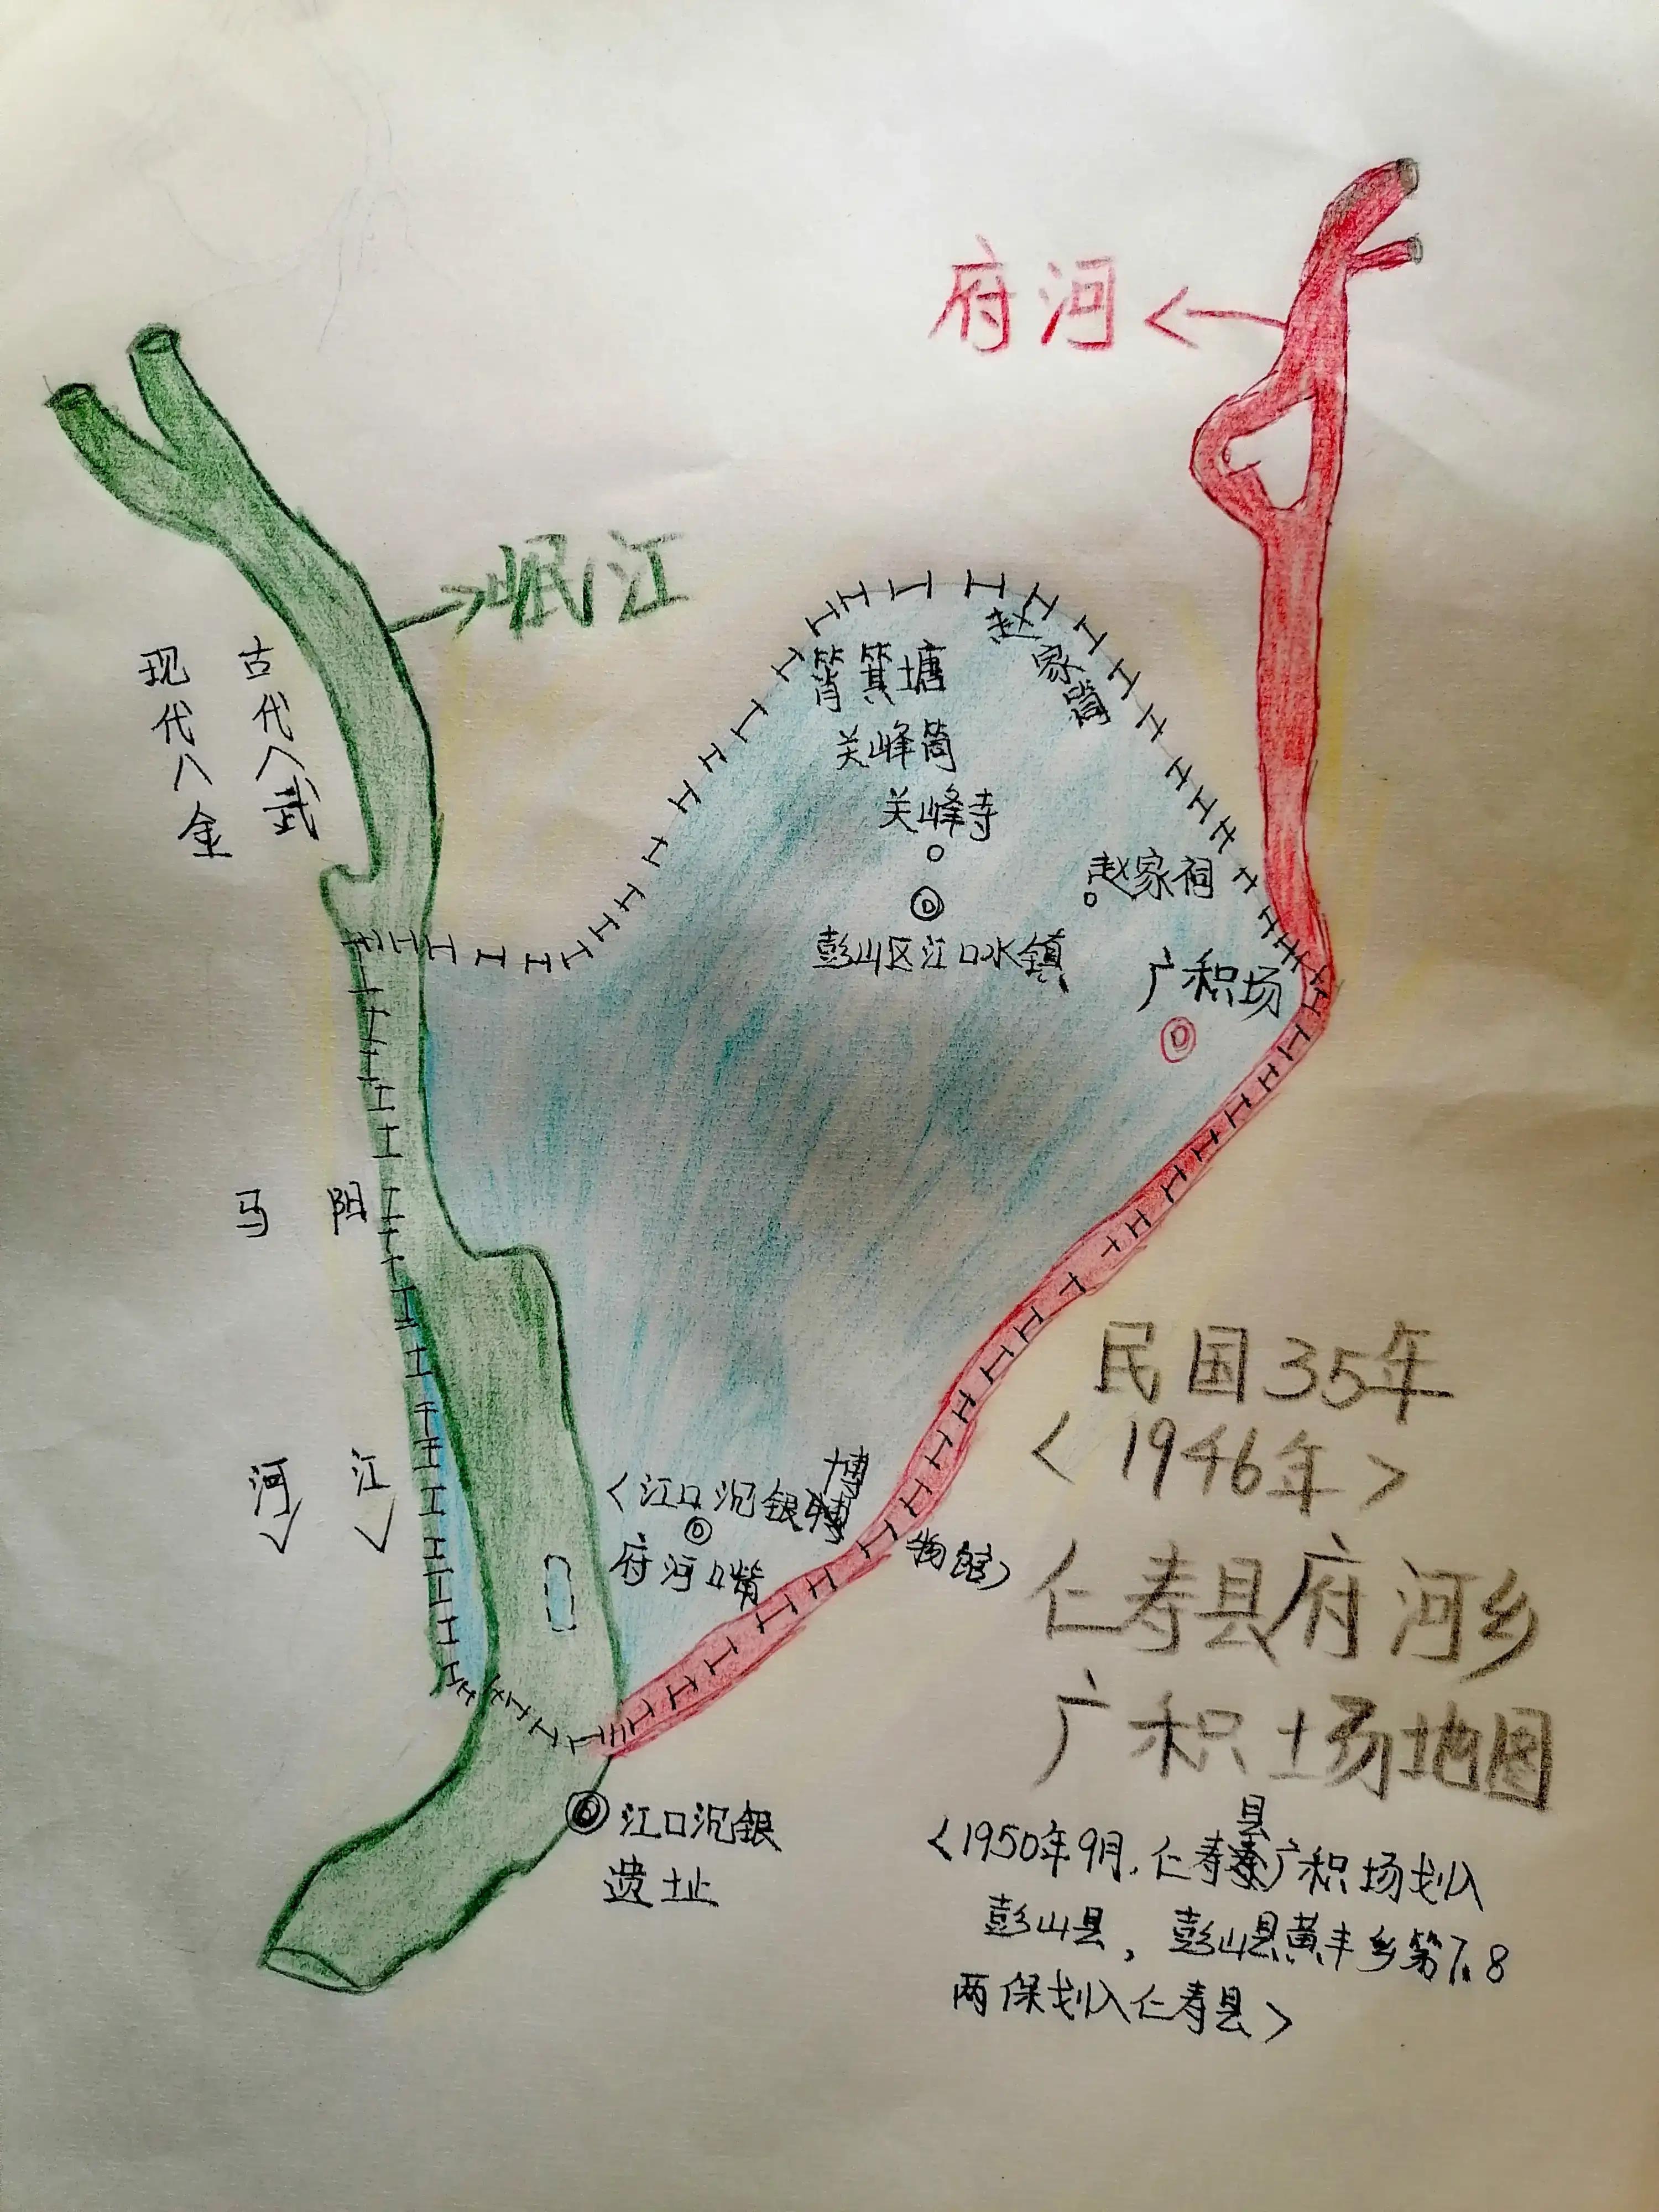 府河
岷江
古代<武阳江>
现代<金马河>
筲箕塘
赵家筒
关峰筒
关峰寺
赵家祠
彭山区江口水镇
广积场
<江口沉银博物馆>
府河口嘴
民国35年
<1946年>
仁寿县府河乡
广积场地图
江口沉银
遗址
<1950年9月,仁寿县广积场划入
彭山县,彭山县黄丰乡第7.8
两保划入仁寿县>